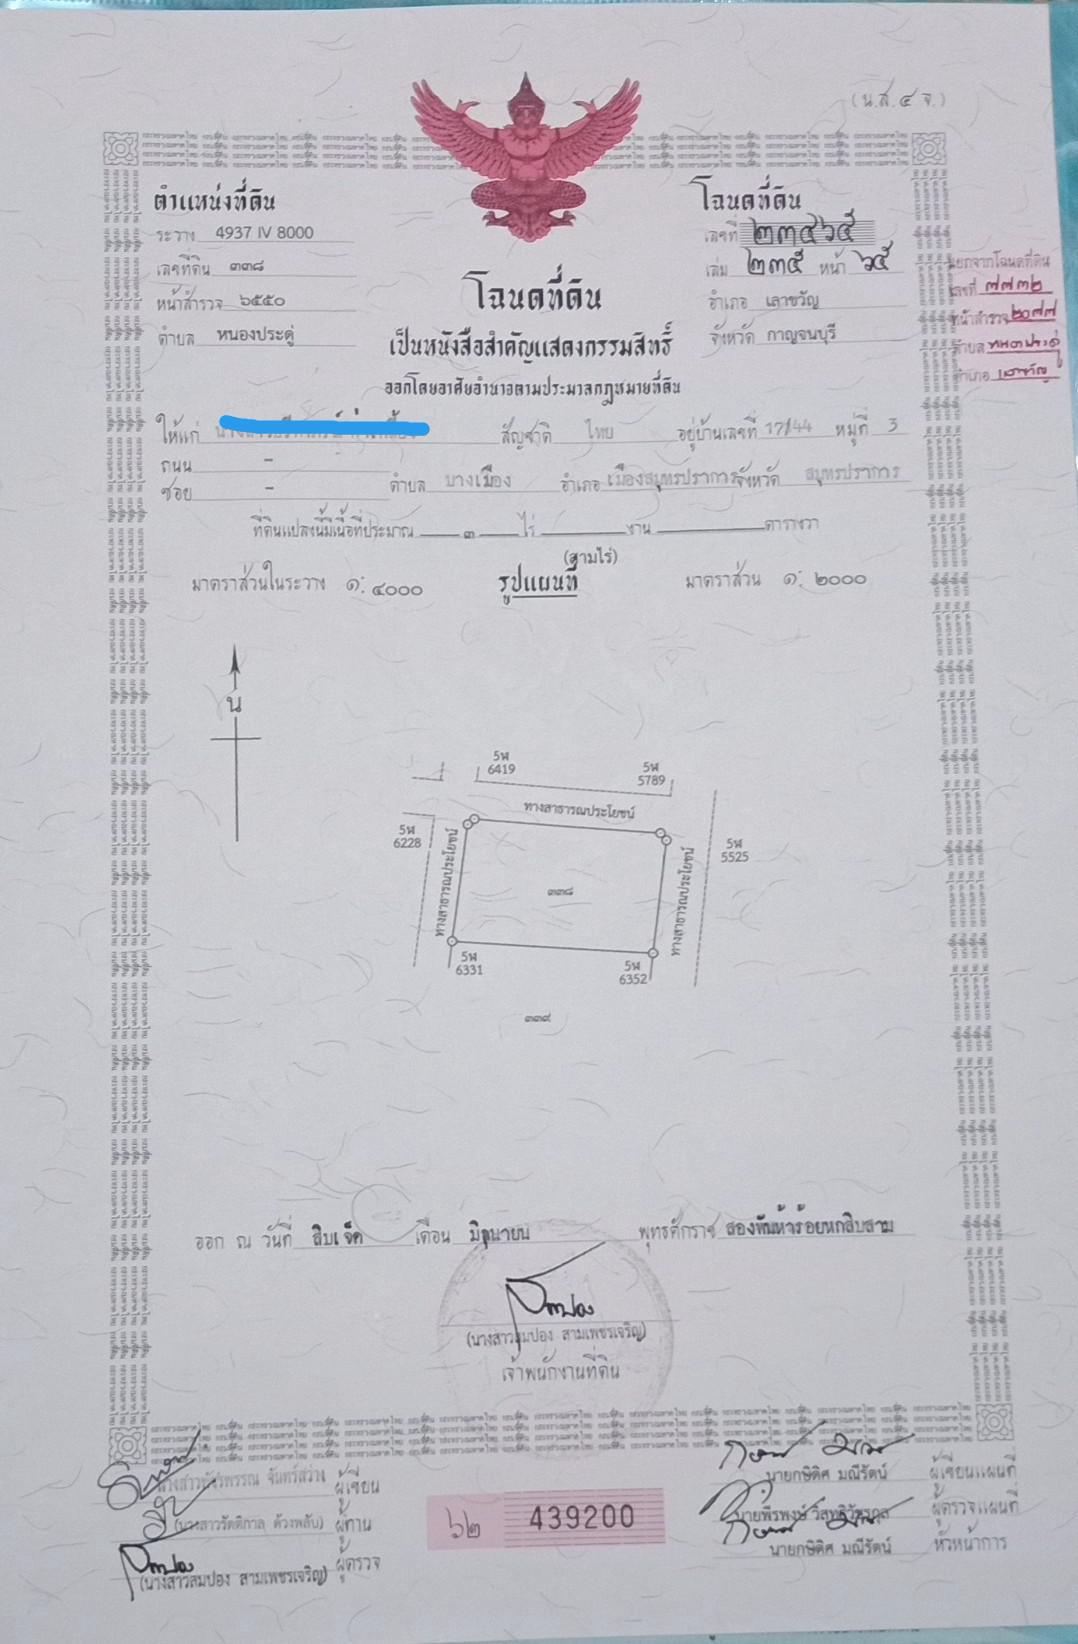 (น.ส.๔ จ.)
ตำแหน่งที่ดิน
ระวาง 4937 IV 8000
เลขที่ดิน ๓๓๘
หน้าสำรวจ ๖๕๕๐
ตำบล หนองประดู่
โฉนดที่ดิน
เลขที่ ๒๓๕๖๕
เล่ม ๒๓๕ หน้า ๖๕
อำเภอ เลาขวัญ
จังหวัด กาญจนบุรี
แยกจากโฉนดที่ดิน
เลขที่ ๗๗๓๒
หน้าสำรวจ ๒๐๗๗
ตำบล หนองประดู่
อำเภอ เลาขวัญ
โฉนดที่ดิน
เป็นหนังสือสำคัญแสดงกรรมสิทธิ์
ออกโดยอาศัยอำนาจตามประมวลกฎหมายที่ดิน
ให้แก่ สัญชาติ ไทย อยู่บ้านเลขที่ 17/44 หมู่ที่ 3
ถนน -
ซอย - ตำบล บางเมือง อำเภอ เมืองสมุทรปราการ จังหวัด สมุทรปราการ
ที่ดินแปลงนี้มีเนื้อที่ประมาณ ๓ ไร่ งาน ตารางวา
(สามไร่)
มาตราส่วนในระวาง ๑: ๔๐๐๐ รูปแผนที่ มาตราส่วน ๑: ๒๐๐๐
น
5พ
6419
5พ
5789
ทางสาธารณประโยชน์
5พ
6228
ทางสาธารณประโยชน์
๓๓๘
ทางสาธารณประโยชน์
5พ
5525
5พ
6331
5พ
6352
๓๓๙
ออก ณ วันที่ สิบเจ็ด เดือน มิถุนายน พุทธศักราช สองพันห้าร้อยหกสิบสาม
สมปอง
(นางสาวสมปอง สามเพชรเจริญ)
เจ้าพนักงานที่ดิน
จันทร์สว่าง ผู้เขียน
(นางสาวรัตติกาล ด้วงพลับ) ผู้ทาน
สมปอง
(นางสาวสมปอง สามเพชรเจริญ) ผู้ตรวจ
๖๒ 439200
นายกษิดิศ มณีรัตน์ ผู้เขียนแผนที่
นายพีรพงษ์ วิสุทธิวัชรกุล ผู้ตรวจแผนที่
นายกษิดิศ มณีรัตน์ หัวหน้าการ